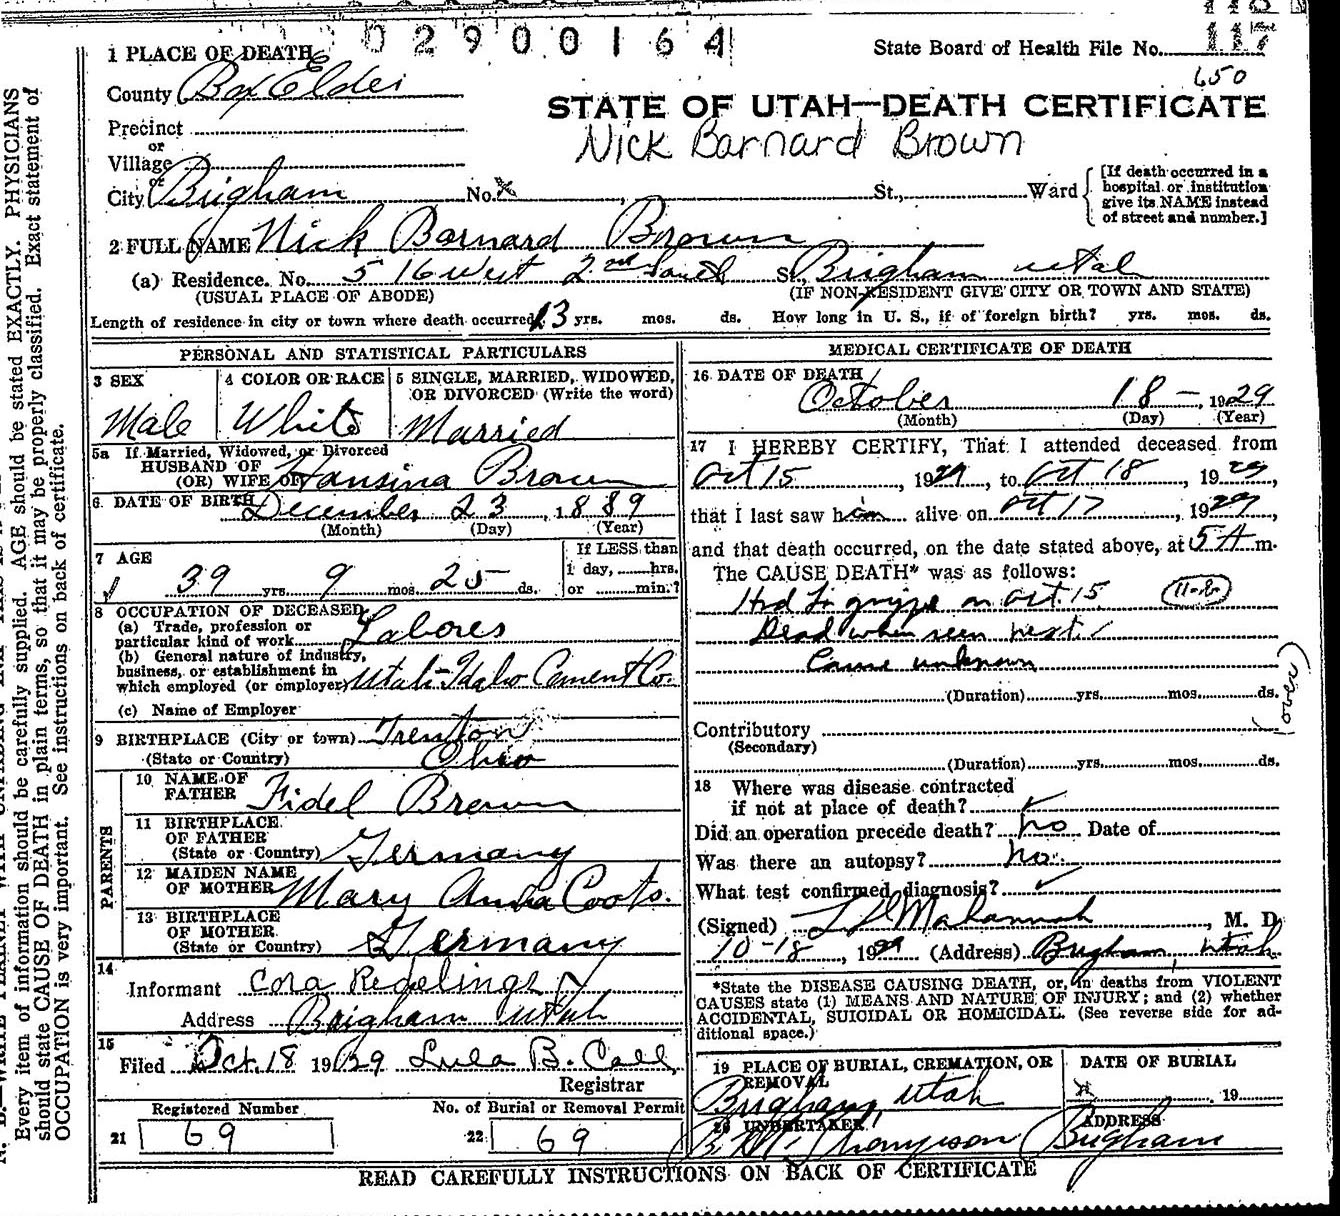 02900164
118
1 PLACE OF DEATH
State Board of Health File No. 117
650
County Box Elder
STATE OF UTAH—DEATH CERTIFICATE
Nick Barnard Brown
Precinct
or
Village
or
City Brigham No. x St., Ward
[If death occurred in a hospital or institution give its NAME instead of street and number.]
2 FULL NAME Nick Barnard Brown
(a) Residence. No. 516 West 2nd South St., Brigham Utah
(USUAL PLACE OF ABODE) (IF NON-RESIDENT GIVE CITY OR TOWN AND STATE)
Length of residence in city or town where death occurred 13 yrs. mos. ds. How long in U. S., if of foreign birth? yrs. mos. ds.
PERSONAL AND STATISTICAL PARTICULARS
3 SEX 4 COLOR OR RACE 5 SINGLE, MARRIED, WIDOWED, OR DIVORCED (Write the word)
Male White Married
5a If Married, Widowed, or Divorced
HUSBAND OF
(OR) WIFE OF Hansina Brown
6 DATE OF BIRTH December 23, 1889
(Month) (Day) (Year)
7 AGE If LESS than
1 day, hrs.
39 yrs. 9 mos. 25 ds. or min.?
8 OCCUPATION OF DECEASED
(a) Trade, profession or
particular kind of work Laborer
(b) General nature of industry,
business, or establishment in
which employed (or employer) Utah-Idaho Cement Co.
(c) Name of Employer
9 BIRTHPLACE (City or town) Trenton
(State or Country) Ohio
PARENTS
10 NAME OF
FATHER Fidel Brown
11 BIRTHPLACE
OF FATHER
(State or Country) Germany
12 MAIDEN NAME
OF MOTHER Mary Anna Coots.
13 BIRTHPLACE
OF MOTHER
(State or Country) Germany
14
Informant Cora Redelings
Address Brigham Utah
15
Filed Oct. 18 1929 Lula B. Call,
Registrar
Registered Number No. of Burial or Removal Permit
21 69 22 69
MEDICAL CERTIFICATE OF DEATH
16 DATE OF DEATH
October 18 -, 1929
(Month) (Day) (Year)
17 I HEREBY CERTIFY, That I attended deceased from
Oct 15, 1929, to Oct 18, 1929,
that I last saw him alive on Oct 17, 1929,
and that death occurred, on the date stated above, at 5 A m.
The CAUSE DEATH* was as follows:
Had La grippe on Oct. 15. 11-B
Dead when seen next
Cause unknown
(over)
(Duration) yrs. mos. ds.
Contributory
(Secondary)
(Duration) yrs. mos. ds.
18 Where was disease contracted
if not at place of death? ✓
Did an operation precede death? no Date of
Was there an autopsy? no.
What test confirmed diagnosis? ✓
(Signed) Mahannah, M. D.
10-18, 1929 (Address) Brigham, Utah
*State the DISEASE CAUSING DEATH, or, in deaths from VIOLENT
CAUSES state (1) MEANS AND NATURE OF INJURY; and (2) whether
ACCIDENTAL, SUICIDAL OR HOMICIDAL. (See reverse side for ad-
ditional space.)
19 PLACE OF BURIAL, CREMATION, OR REMOVAL DATE OF BURIAL
Brigham, Utah x 19
20 UNDERTAKER ADDRESS
Thompson Brigham
READ CAREFULLY INSTRUCTIONS ON BACK OF CERTIFICATE
Every item of information should be carefully supplied. AGE should be stated EXACTLY. PHYSICIANS
should state CAUSE OF DEATH in plain terms, so that it may be properly classified. Exact statement of
OCCUPATION is very important. See instructions on back of certificate.